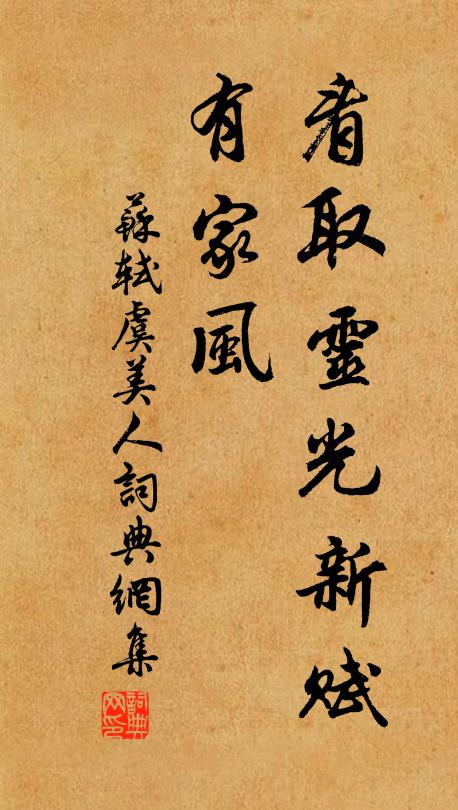 看取靈光新賦
有家風
蘇軾虞美人詞典網集
詞典網印